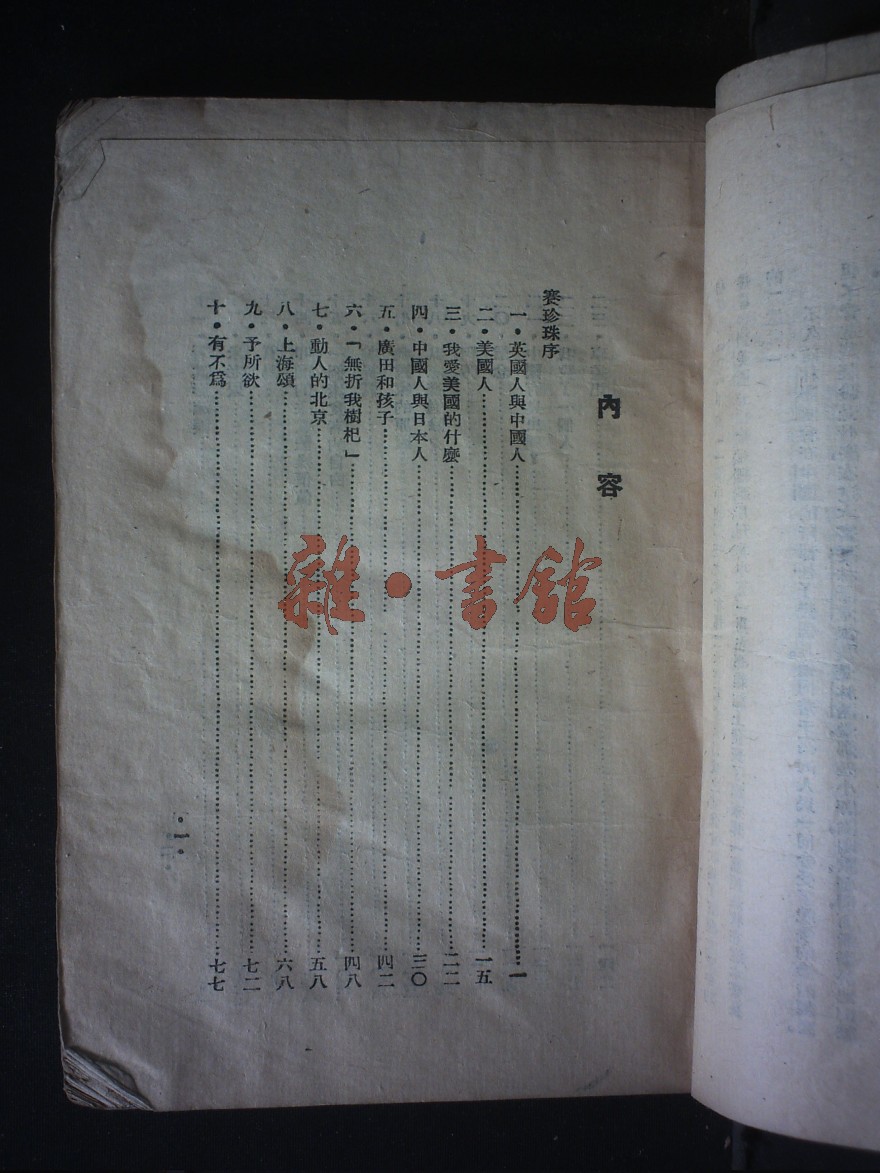 內容
賽珍珠序
一・英國人與中國人………一
二・美國人………一五
三・我愛美國的什麼………二二
四・中國人與日本人………三〇
五・廣田和孩子………四二
六・「無折我樹杞」………四八
七・動人的北京………五八
八・上海頌………六八
九・予所欲………七二
十・有不爲………七七
・一・
雜・書館